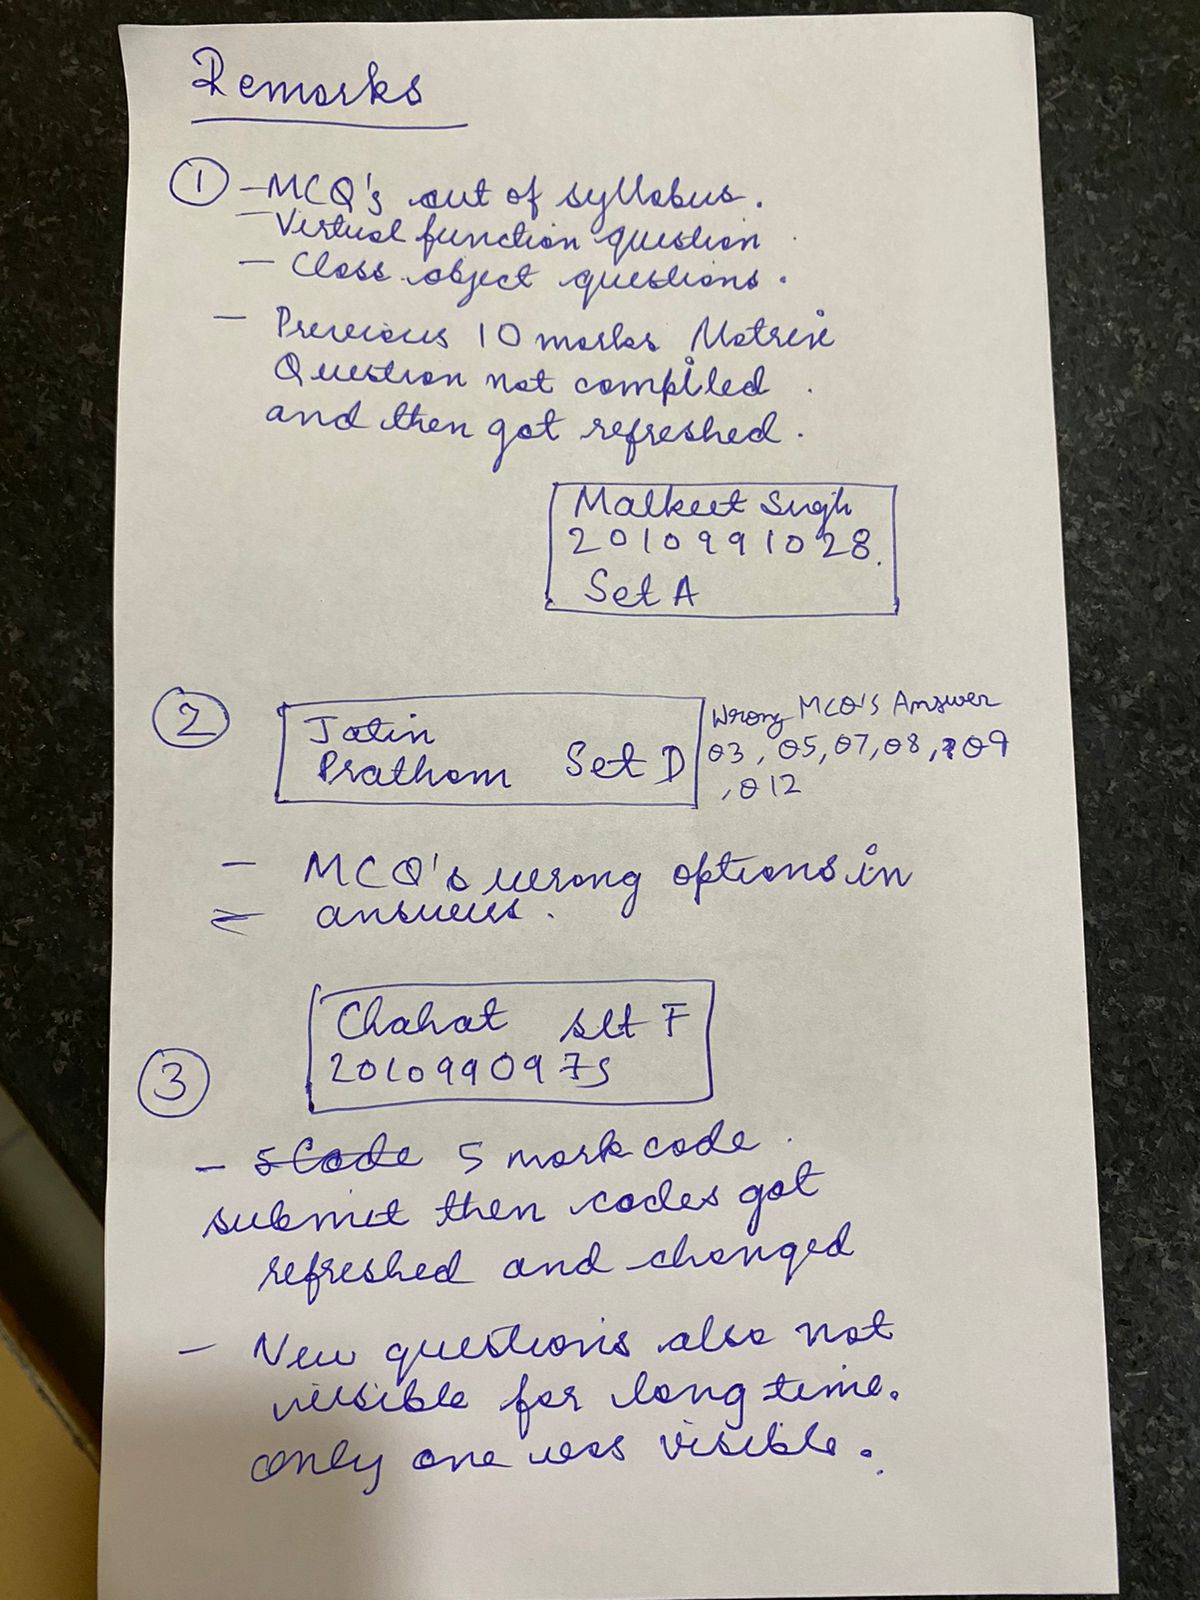 Remarks
① - MCQ's out of syllabus.
- Virtual function question
- Class object questions.
- Previous 10 marks Matrix
Question not compiled
and then got refreshed.
Malkeet Singh
2010991028.
Set A
②
Jatin
Pratham Set D
Wrong MCQ'S Answer
Q3, Q5, Q7, Q8, Q9
, Q12
- MCQ's wrong options in
answers.
Chahat Set F
2010990975
③
- 5 Code 5 mark code.
submit then codes got
refreshed and changed
- New questions also not
visible for long time.
only one was visible.